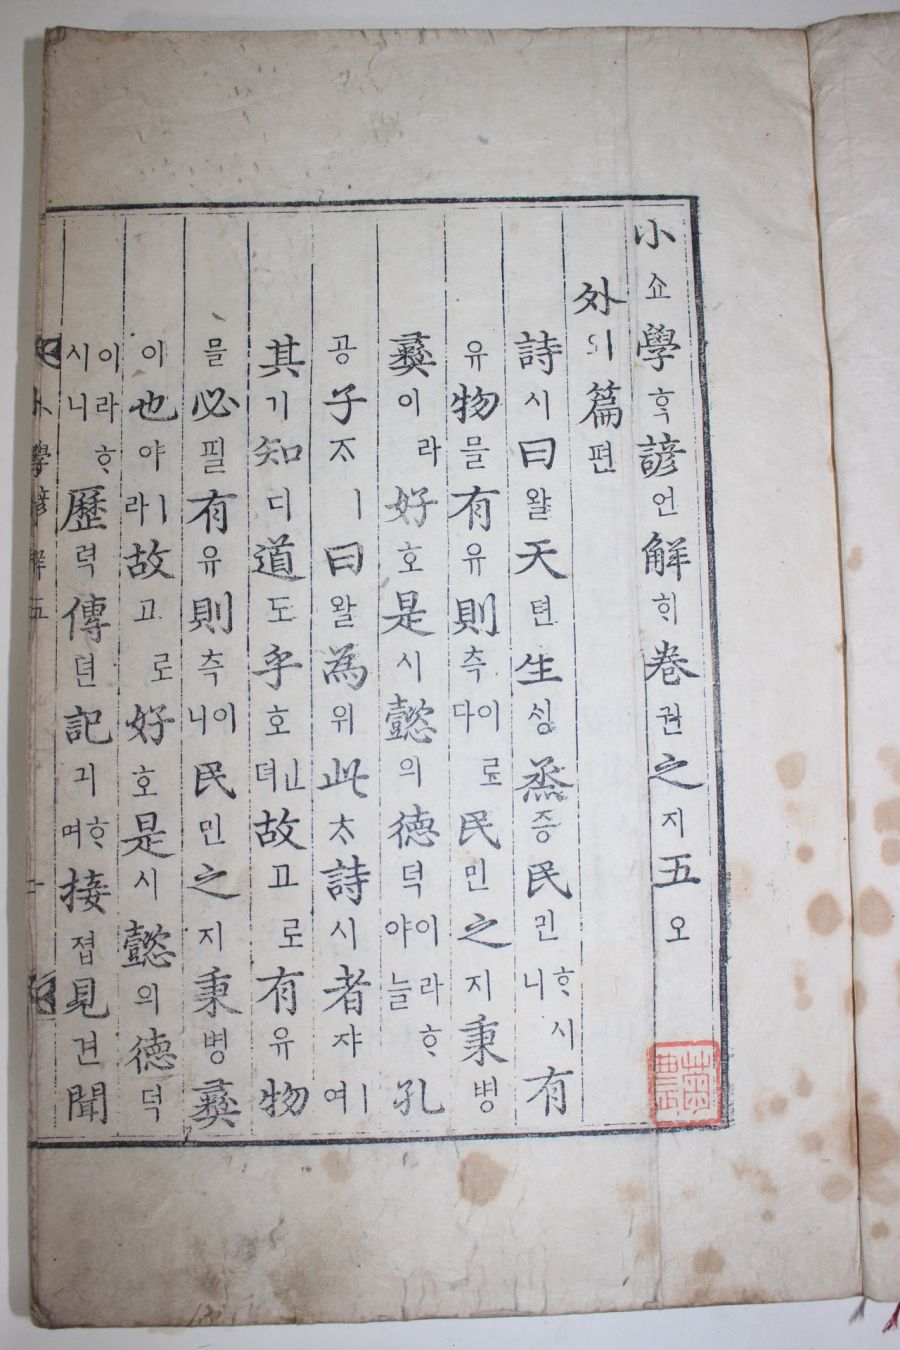 小쇼學ᄒᆞᆨ諺언解ᄒᆡ卷권之지五오
外외篇편
詩시曰왈天텬生ᄉᆡᆼ烝증民민ᄒᆞ시니有
유物믈有유則측이로다民민之지秉병
彝이라好호是시懿의德덕이라ᄒᆞ야늘孔
공子ᄌᆞㅣ曰왈為위此ᄎᆞ詩시者쟈ㅣ여
其기知디道도乎호ᅟᅵᆫ뎌故고로有유物
믈必필有유則측이니民민之지秉병彝
이也야ㅣ라故고로好호是시懿의德덕
이라ᄒᆞ시니歷력傳뎐記긔ᄒᆞ며接졉見견聞
小學諺解五 一